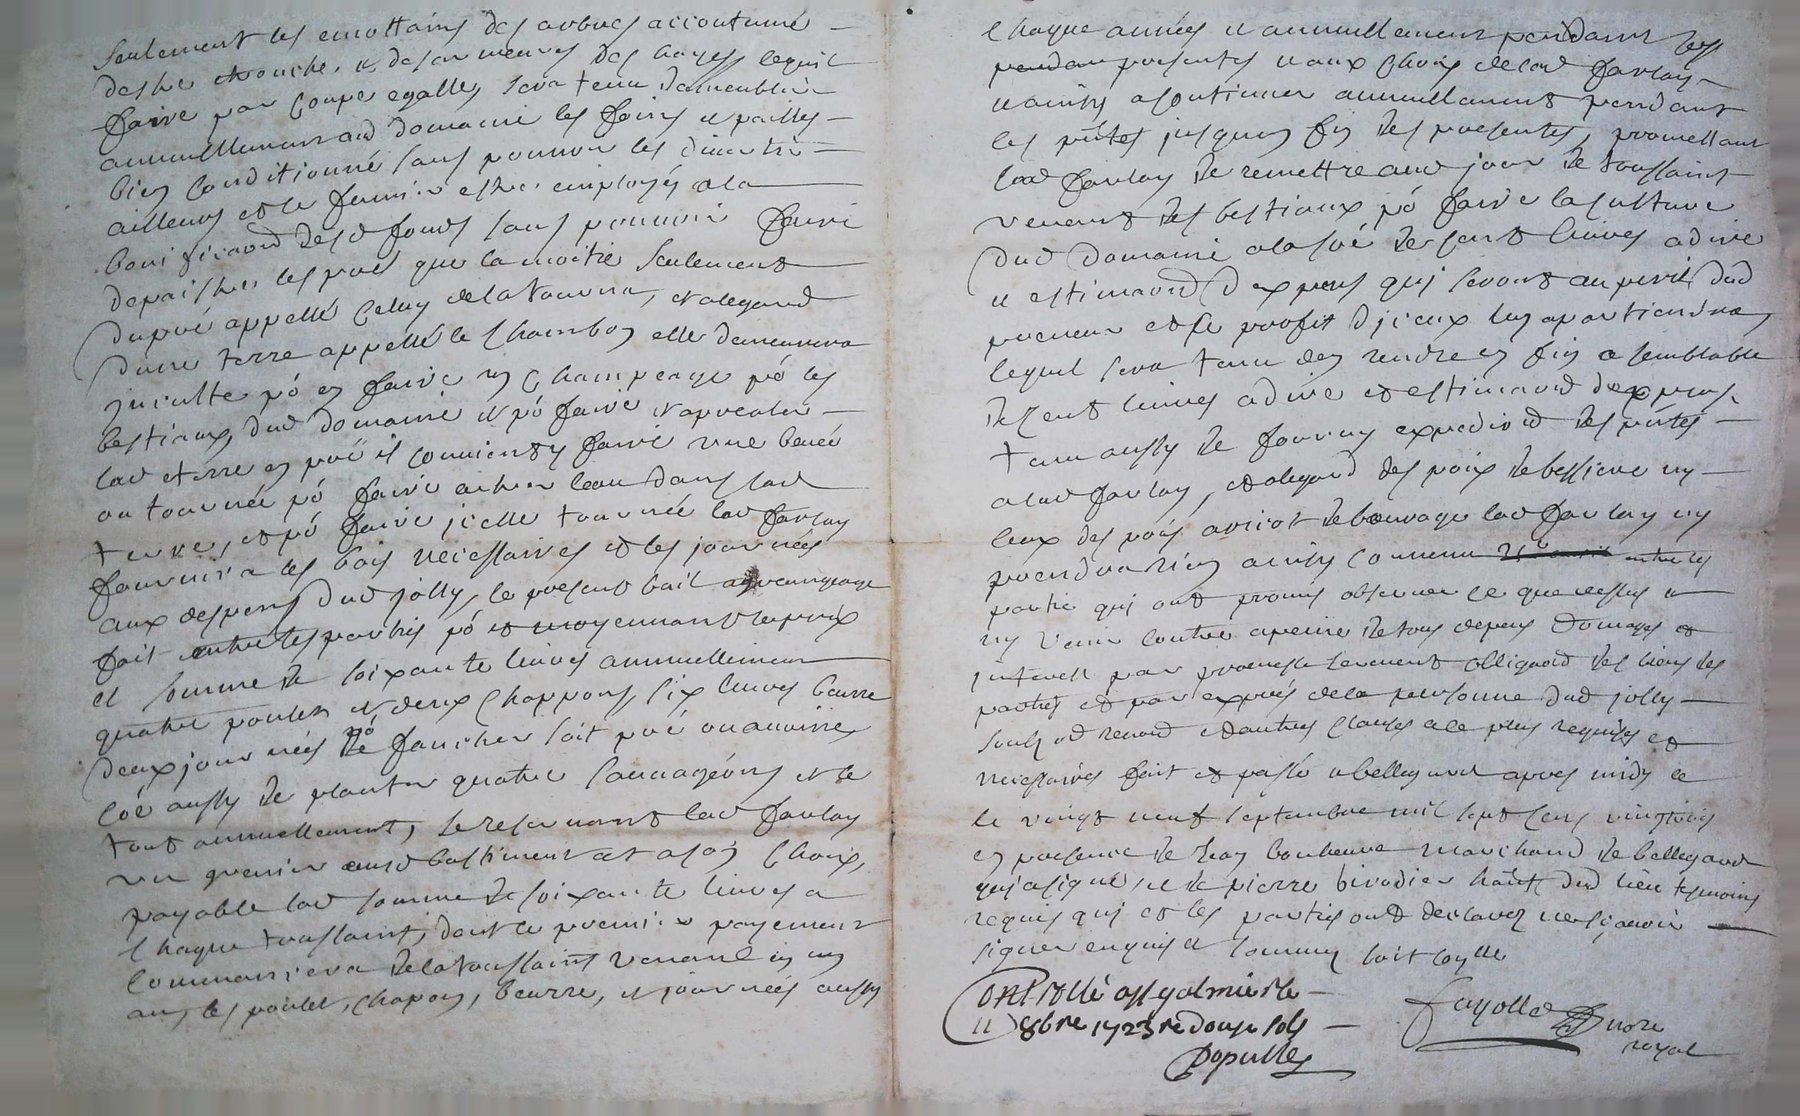 seulement les emottains des arbres accoutumé
destre et des meures des hayes lequil
faire par coupe egalle, sera tenu dameublir
annuellement aud domaine les foins et pailles
bien conditionné sans pouvoir les divertir
ailleurs et le fumier estre employés a la
bonificaond desd fonds sans pouvoir faire
depaistre les prés que la moitié seulement
du pré appellé celuy de la et alegard
dune terre appellé le Chambon elle demeurera
inculte pô en faire un champeage pô les
bestiaux dud domaine et pô faire
lad terre en pré il conviendt y faire une
ou tournée pô faire leau dans lad
terre, et pô faire jcelle tournée lad farlay
fournira les bois necessaires et les journées
aux despens dud jolly, le present bail
fait entre les parties pô et moyennant le prix
et somme de soixante livres annuellement
quatre poulets et deux chappons, six livres beurre
deux journées pô faucher soit pré ou avoine
coe aussy de planter quatre sauvageons et le
tout annuellement, se reservant lad farlay
un grenier aud bastiment et a son choix,
payable lad somme de soixante livres a
chaque toussaint, dont le premier payement
commancera de la toussaint venant en un
an, les poulet, chapon, beurre, et journées aussy
chaque années et annuellement pendant les
presentes et aux choix de lad farlay
et ainsy a continuer annuellement pendant
les pntes jusquen fin des presentes, promettant
lad farlay de remettre aud jour de toussaint
venant des bestiaux pô faire la culture
dud domaine a la sôe de cent livres a dire
et estimaond dexpers qui seront au peril dud
preneur et le proffit djceux luy apartiendra,
lequel sera tenu den rendre en fin a semblable
de cent livres a dire et estimaond dexpers,
tenu aussy de fournir expediond des pntes
a lad farlay, et alegard des noix de bessiere ny
ceux des noix de lad farlay ny
prendra rien ainsy convenu entre les
partie qui ont promis observer ce que dessus et
ny venir contre a peine de tous depens domages et
interest par serement obligaond des biens des
parties et par exprés de la personne dud jolly
soubz od renond et autres clauses a ce plus requises et
necessaires fait et passé a bellegarde apres midy ce
le vingt neuf septembre mil sept cens vingt trois
en presence de Jean bonheure marchand de bellegarde
qui a signé, et de pierre birodier hânt dud lieu tesmoins
requis qui et les parties ont declarez ne sçavoir
signer enquis et sommez soit
Controllé a St galmier le
11 8bre 1723 re douze sols
Populle
fayolle nore
royal